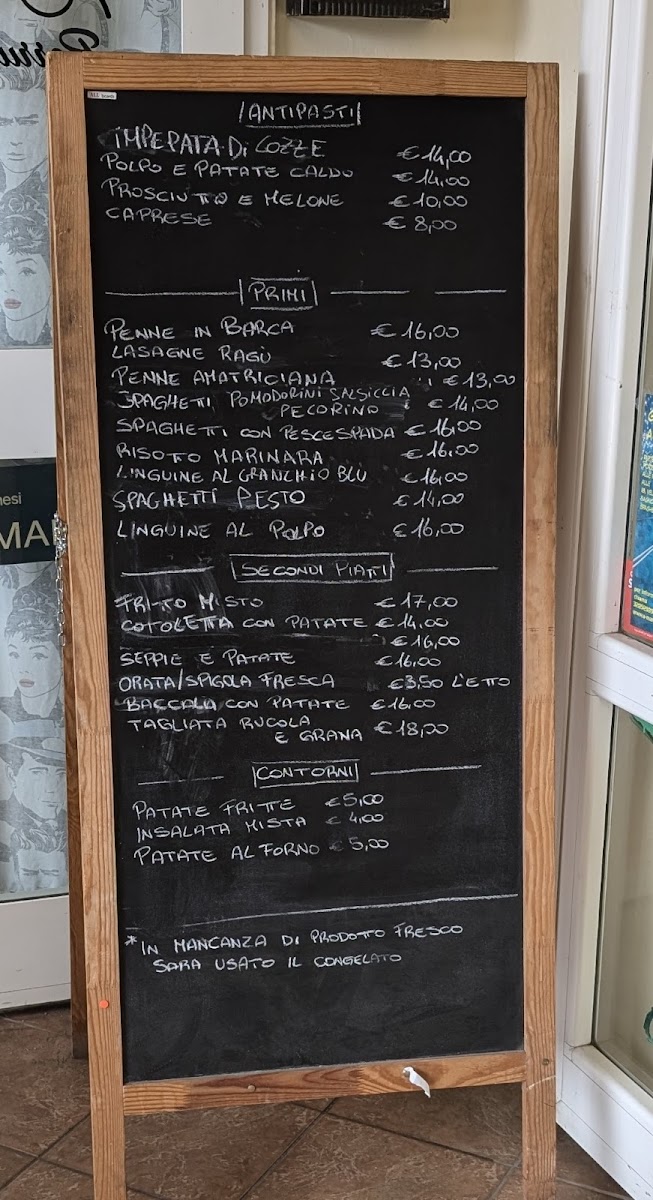 ANTIPASTI
IMPEPATA DI COZZE € 14,00
POLPO E PATATE CALDO € 14,00
PROSCIUTTO E MELONE € 10,00
CAPRESE € 8,00
PRIMI
PENNE IN BARCA € 16,00
LASAGNE RAGÙ € 13,00
PENNE AMATRICIANA € 13,00
SPAGHETTI POMODORINI SALSICCIA
PECORINO € 14,00
SPAGHETTI CON PESCESPADA € 16,00
RISOTO MARINARA € 16,00
LINGUINE AL GRANCHIO BLÙ € 16,00
SPAGHETTI PESTO € 14,00
LINGUINE AL POLPO € 16,00
SECONDI PIATTI
FRITTO MISTO € 17,00
COTOLETTA CON PATATE € 14,00
€ 16,00
SEPPIE E PATATE € 16,00
ORATA/SPIGOLA FRESCA € 3,50 L'ETTO
BACCALA CON PATATE € 16,00
TAGLIATA RUCOLA
E GRANA € 18,00
CONTORNI
PATATE FRITTE € 5,00
INSALATA MISTA € 4,00
PATATE AL FORNO € 5,00
*IN MANCANZA DI PRODOTTO FRESCO
SARA USATO IL CONGELATO